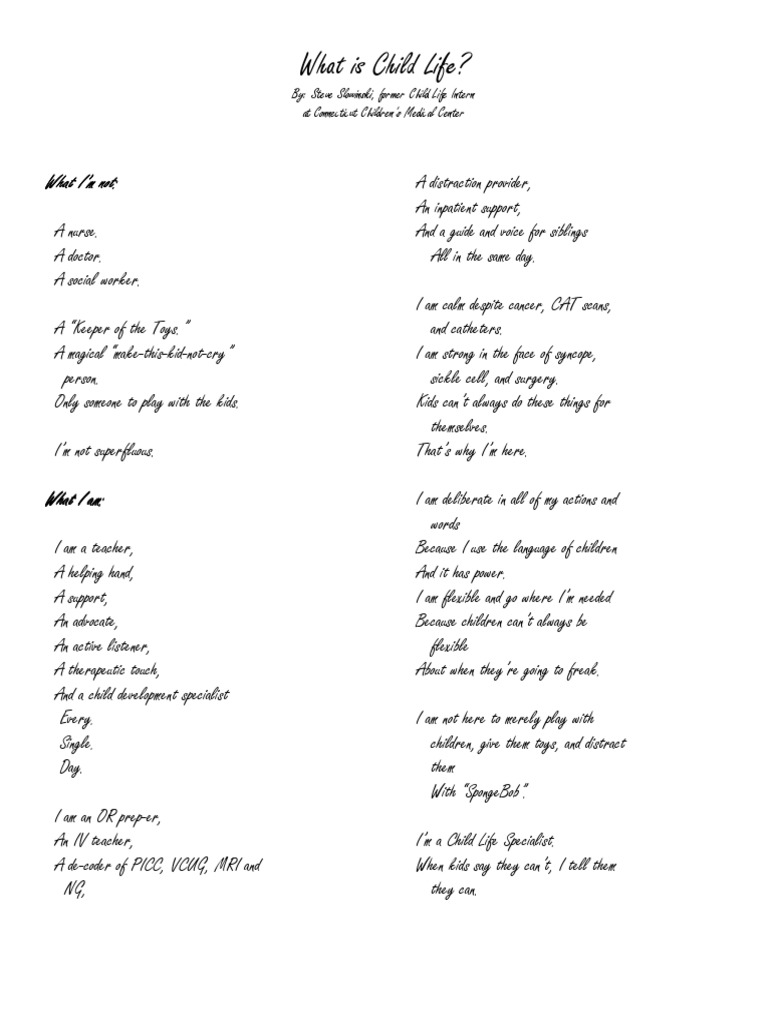 What is Child Life?
By: Steve Slowinski, former Child Life Intern
at Connecticut Children's Medical Center
What I'm not:
A nurse.
A doctor.
A social worker.
A "Keeper of the Toys."
A magical "make-this-kid-not-cry"
person.
Only someone to play with the kids.
I'm not superfluous.
What I am:
I am a teacher,
A helping hand,
A support,
An advocate,
An active listener,
A therapeutic touch,
And a child development specialist
Every.
Single.
Day.
I am an OR prep-er,
An IV teacher,
A de-coder of PICC, VCUG, MRI and
NG,
A distraction provider,
An inpatient support,
And a guide and voice for siblings
All in the same day.
I am calm despite cancer, CAT scans,
and catheters.
I am strong in the face of syncope,
sickle cell, and surgery.
Kids can't always do these things for
themselves.
That's why I'm here.
I am deliberate in all of my actions and
words
Because I use the language of children
And it has power.
I am flexible and go where I'm needed
Because children can't always be
flexible
About when they're going to freak.
I am not here to merely play with
children, give them toys, and distract
them
With "SpongeBob".
I'm a Child Life Specialist.
When kids say they can't, I tell them
they can.